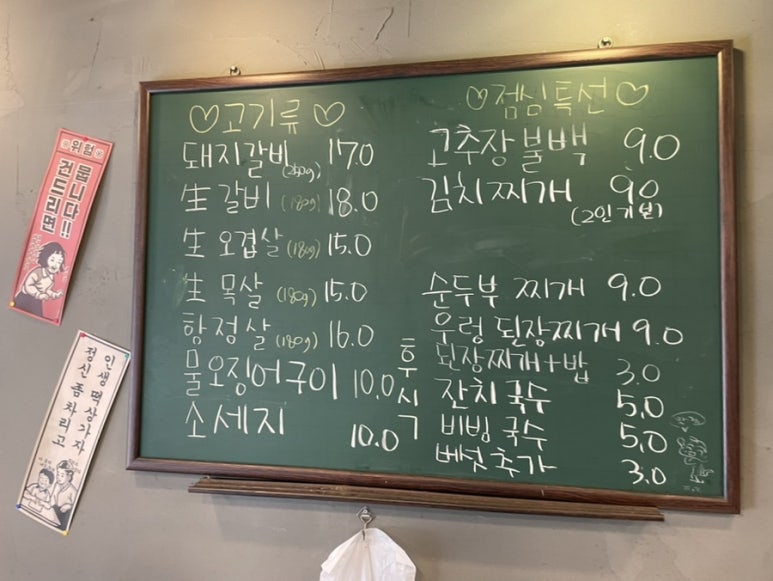 ♡고기류♡
돼지갈비(250g) 17.0
生 갈비 (180g) 18.0
生 오겹살 (180g) 15.0
生 목살 (180g) 15.0
항정살 (180g) 16.0
물오징어구이 10.0
소세지 10.0
♡점심특선♡
고추장불백 9.0
김치찌개 9.0
(2인기본)
후식
순두부 찌개 9.0
우렁 된장찌개 9.0
된장찌개+밥 3.0
잔치국수 5.0
비빔국수 5.0
버섯추가 3.0
위험
건드리면
뭅니다!!
인생 떡상가자
정신 좀 차리고